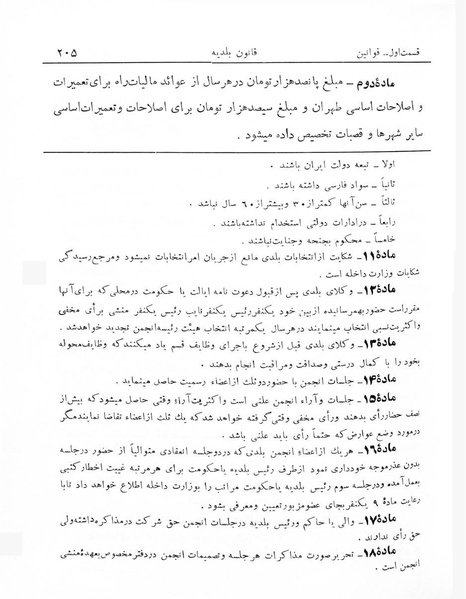 قسمت اول.. قوانین قانون بلدیه ۲۰۵
مادهٔ دوم – مبلغ پانصد هزار تومان در هر سال از عوائد مالیات راه برای تعمیرات
و اصلاحات اساسی طهران و مبلغ سیصد هزار تومان برای اصلاحات و تعمیرات اساسی
سایر شهرها و قصبات تخصیص داده میشود .
اولا – تبعه دولت ایران باشند .
ثانیاً – سواد فارسی داشته باشند .
ثالثاً – سن آنها کمتر از ۳۰ و بیشتر از ۶۰ سال نباشد .
رابعاً – در ادارات دولتی استخدام نداشته باشند .
خامساً – محکوم بجنحه و جنایت نباشند .
مادهٔ ۱۱ – شکایت از انتخابات بلدی مانع از جریان امر انتخابات نمیشود و مرجع رسیدگی
شکایات وزارت داخله است .
مادهٔ ۱۲ – وکلای بلدی پس از قبول دعوت نامه ایالت یا حکومت در محلی که برای آنها
مقرر است حضور بهم رسانیده از بین خود یکنفر رئیس یکنفر نایب رئیس یکنفر منشی برای مخفی
و اکثریت نسبی انتخاب مینمایند در هر سال یکمرتبه انتخاب هیئت رئیسه انجمن تجدید خواهد شد .
مادهٔ ۱۳ – وکلای بلدی قبل از شروع باجرای وظایف قسم یاد میکنند که وظایف محوله
بخود را با کمال درستی و صداقت و مراقبت انجام بدهند .
مادهٔ ۱۴ – جلسات انجمن با حضور دو ثلث از اعضاء رسمیت حاصل مینماید .
مادهٔ ۱۵ – جلسات و آراء انجمن علنی است و اکثریت آراء وقتی حاصل میشود که بیش از
نصف حضار رأی بدهند ورأی مخفی وقتی گرفته خواهد شد که یک ثلث از اعضاء تقاضا نمایند مگر
در مورد وضع عوارض که حتماً رأی باید علنی باشد .
مادهٔ ۱۶ – هر یک از اعضاء انجمن بلدی که در دو جلسه انعقادی متوالیاً از حضور در جلسه
بدون عذر موجه خودداری نمود از طرف رئیس بلدیه یا حکومت برای هر مرتبه غیبت اخطار کتبی
بعمل آمده و در جلسه سوم رئیس بلدیه یا حکومت مراتب را بوزارت داخله اطلاع خواهد داد تا با
رعایت مادهٔ ۹ یکنفر بجای عضو مزبور تعیین و معرفی بشود .
مادهٔ ۱۷ – والی یا حاکم و رئیس بلدیه در جلسات انجمن حق شرکت در مذاکره داشته ولی
حق رأی ندارند .
مادهٔ ۱۸ – تحریر صورت مذاکرات هر جلسه و تصمیمات انجمن در دفتر مخصوص بعهدهٔ منشی
انجمن است .